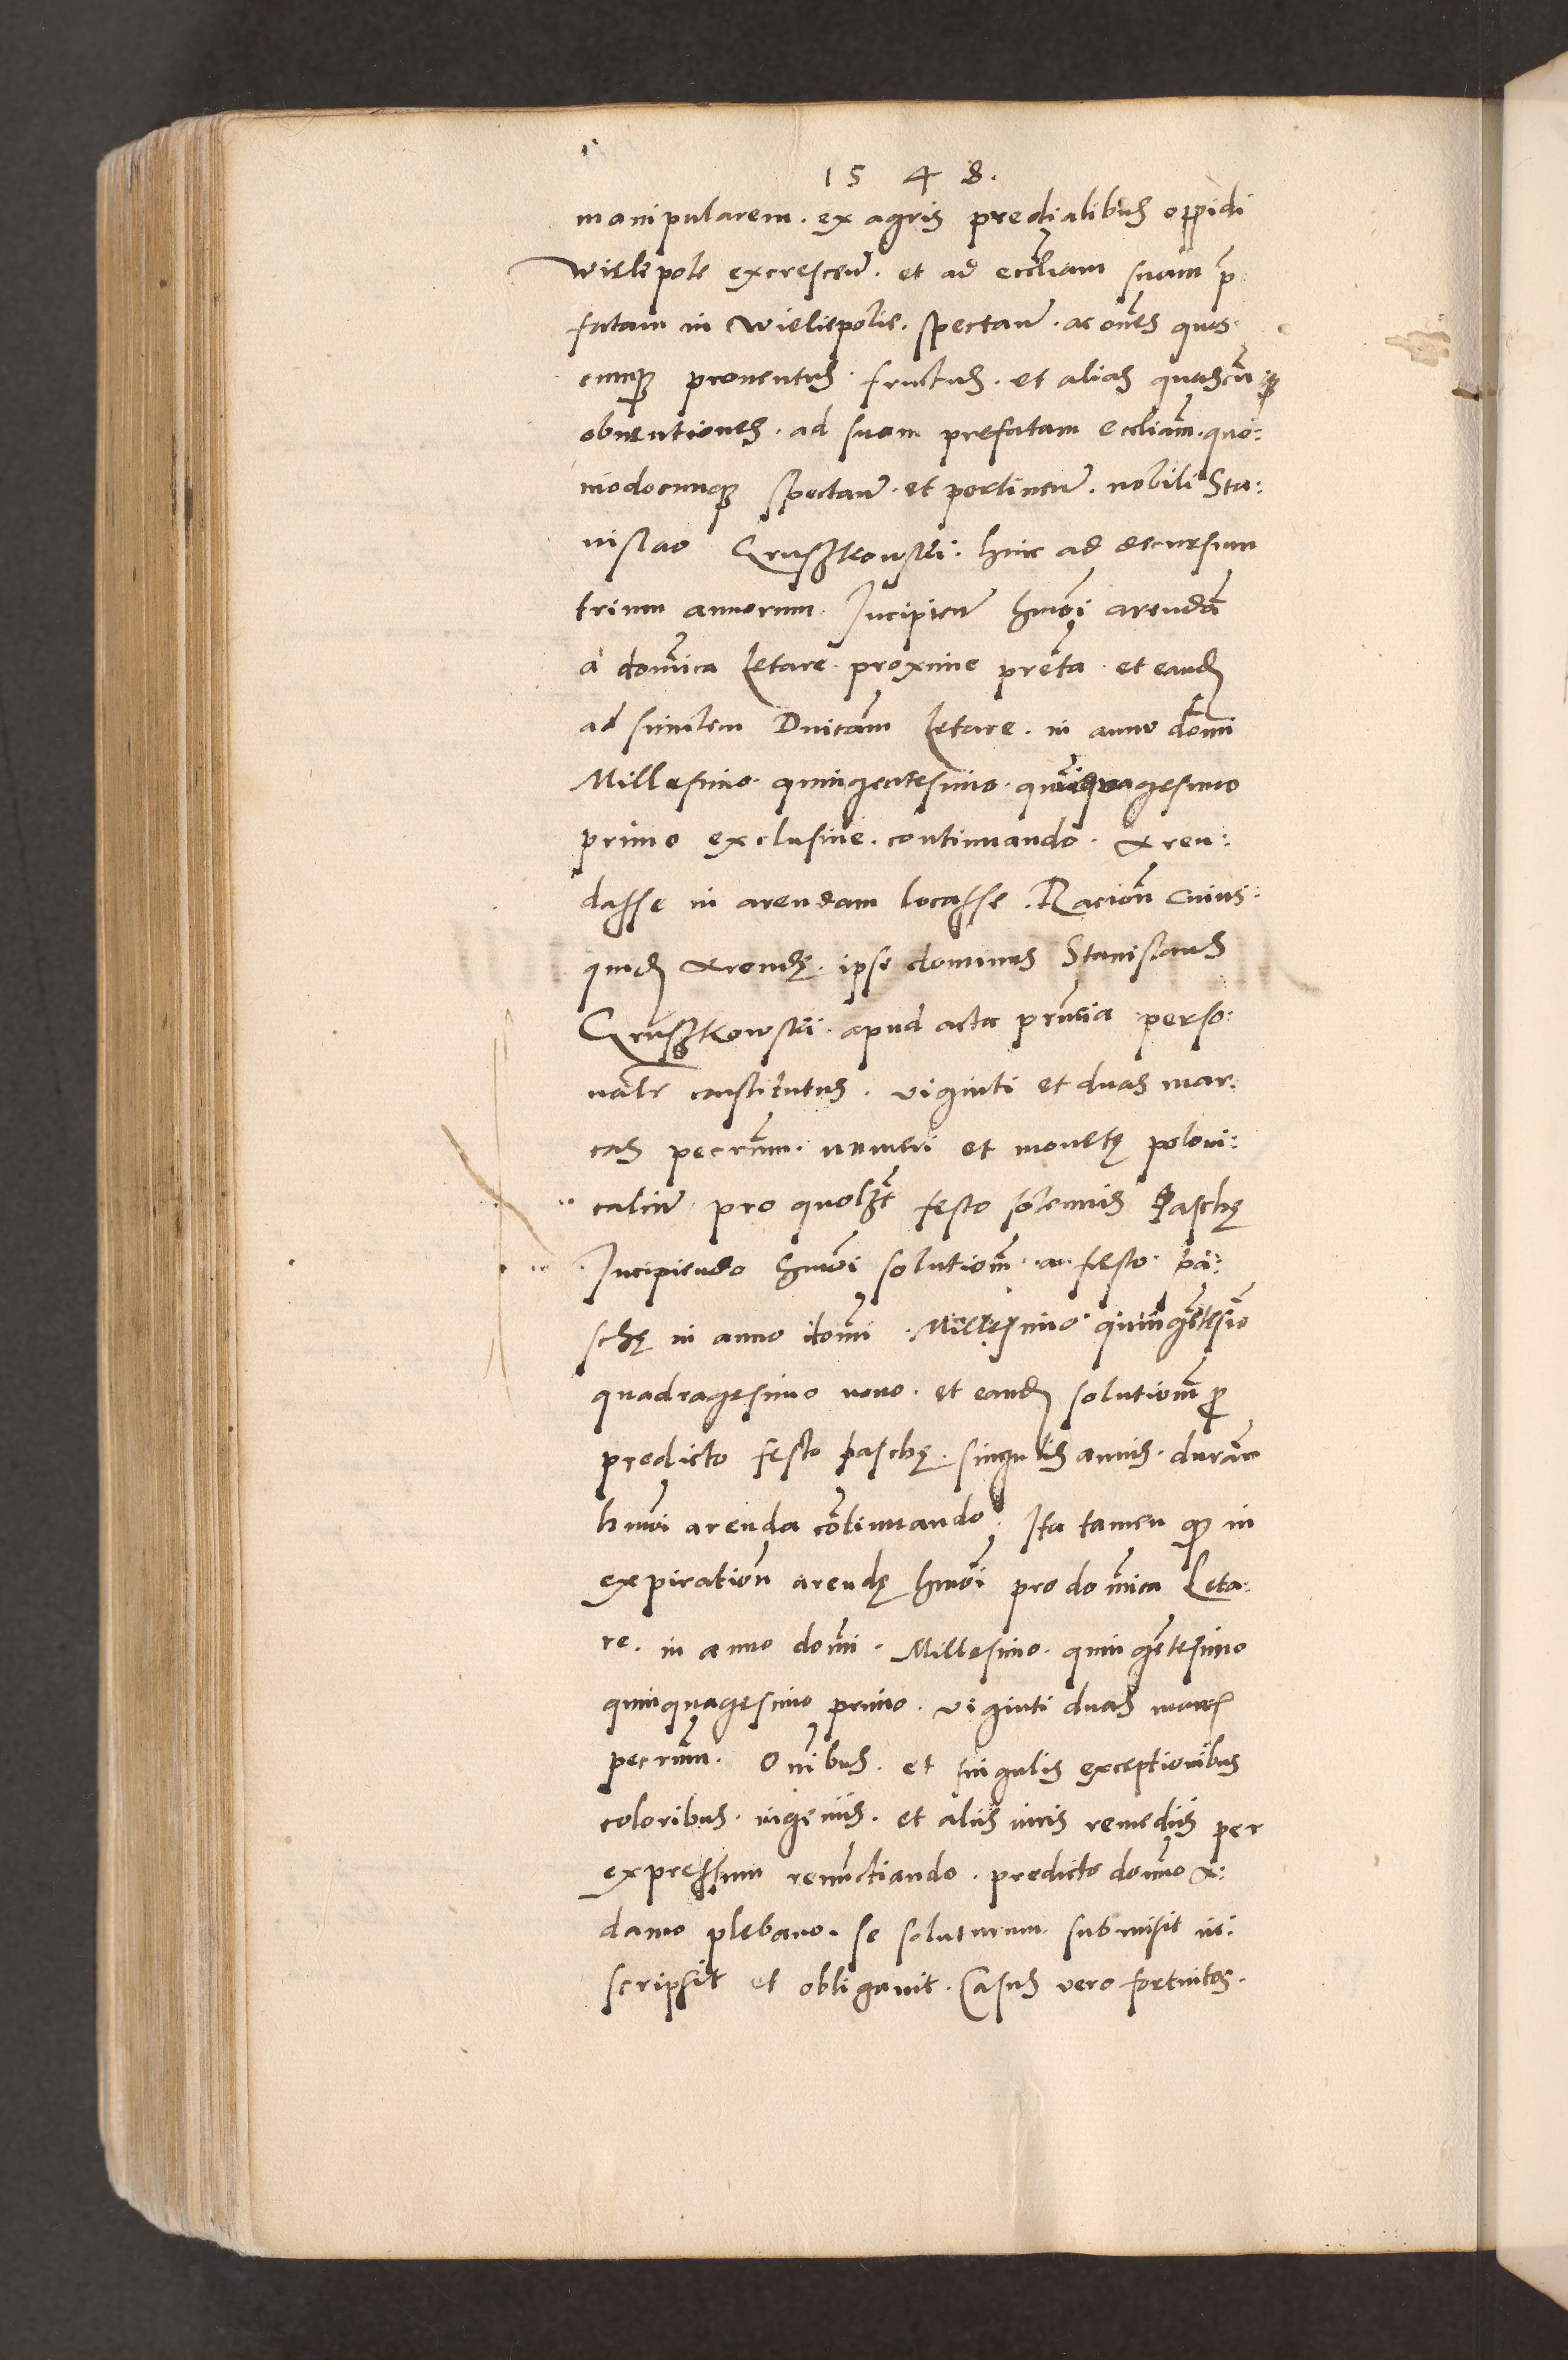 1548.
manipularem. ex agris predialibus oppidi
Wielepole excrescen̄. et ad eccl̄iam suam p̄
fatam in Wieliepolie. spectan̄. ac om̄es quos
cunqȝ proventus. fructus. et alias quascūqȝ
obventiones. ad suam prefatam eccliam̄. quo:
modocunqȝ spectan̄. et pertinen̄. nobili Sta:
nislao Gruszkowski. hinc ad decursum
trium annorum. Incipien̄ hmōi arendā
a domīca Letare. proxime preta᷈. et eandē
ad similem Dnicam̄ Letare. in anno domī
Millesimo. quingentesimo. quinquagesimo
primo exclusive. continuando. Aren:
dasse in arendam locasse. Racion̄ cuius:
quidē Arendę. ipse dominus Stanislaus
Gruszkowski. apud acta prn̄tia perso:
nalr̄ constitutus. viginti et duas mar:
cas pecun̄. numeri et monetę poloni:
calium pro quolȝt festo solennis Paschę
Incipiendo hmōi solutiom̄. a festo. pa:
schę in anno domī. Millesimo quingētesīo
quadragesimo nono. et eandē solutiom̄ p̄
predicto festo paschę. singulis annis. durān
hmōi arenda cōtinuando. Ita tamen qȝ in
expiration̄ arendę hmōi pro domīca Leta:
re. in anno domī. Millesimo. quingētesimo
quinquagesimo primo. viginti duas marcs
pecun̄. Om̄ibus. et singulis exceptionibus
coloribus. ingeniis. et aliis iuris remediis per
expressum renūctiando. predicto domno A:
damo plebano. se soluturum submisit in:
scripsit et obligavit. Casus vero fortuitos.